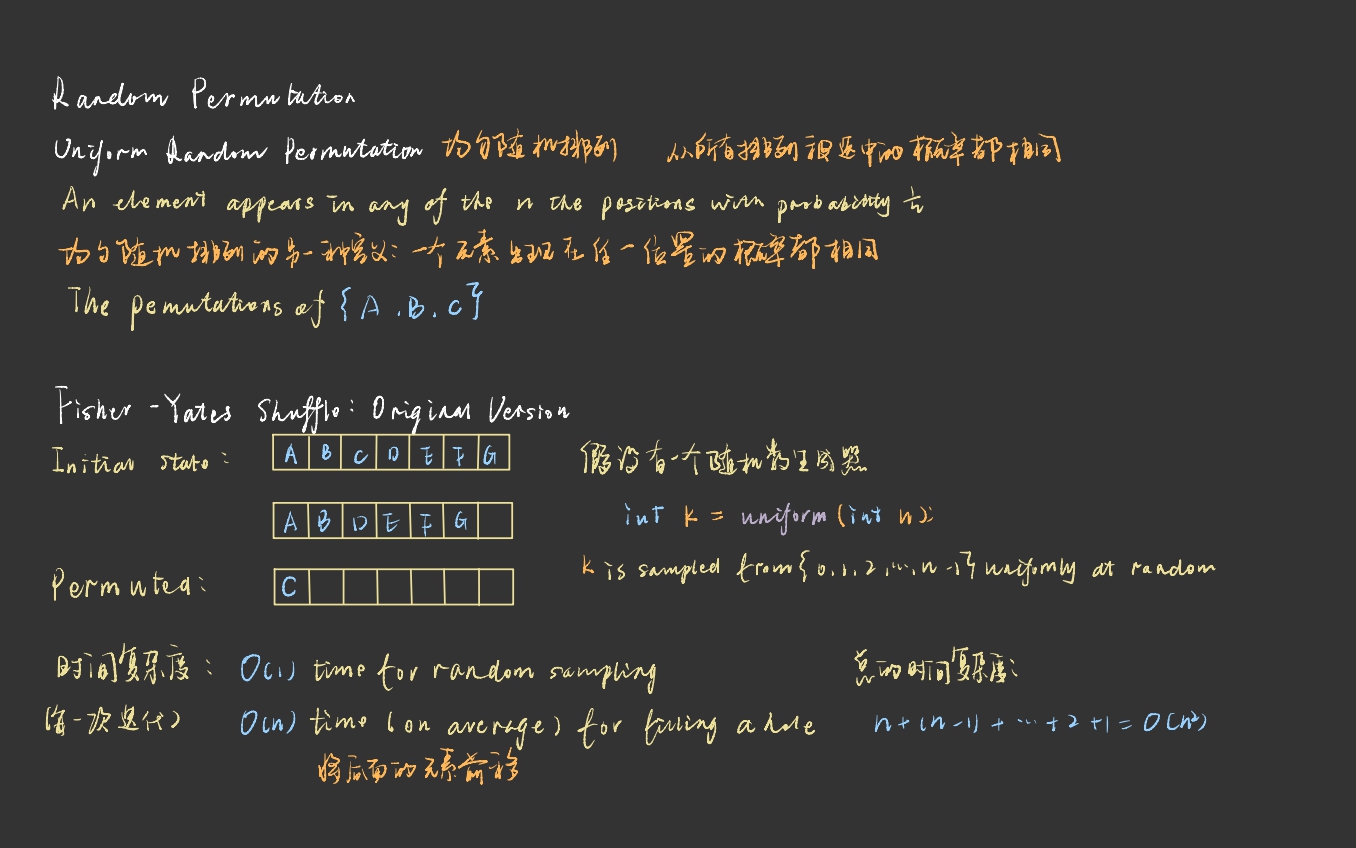 Random Permutation
Uniform Random Permutation 均匀随机排列 从所有排列组合中的概率都相同
An element appears in any of the n the positions with probability 1/n
均匀随机排列的另一种定义: 一个元素出现在任一位置的概率都相同
The pemutations of {A.B.C}
Fisher-Yates Shuffle: Original Version
Initial state: A B C D E F G
假设有一个随机数生成器
A B D E F G
int k = uniform (int n);
Permuted: C
k is sampled from {0,1,2,...,n-1} uniformly at random
时间复杂度: O(1) time for random sampling
总的时间复杂度:
(每一次迭代) O(n) time (on average) for filling a hole
n+(n-1)+...+2+1=O(n²)
将后面的元素前移